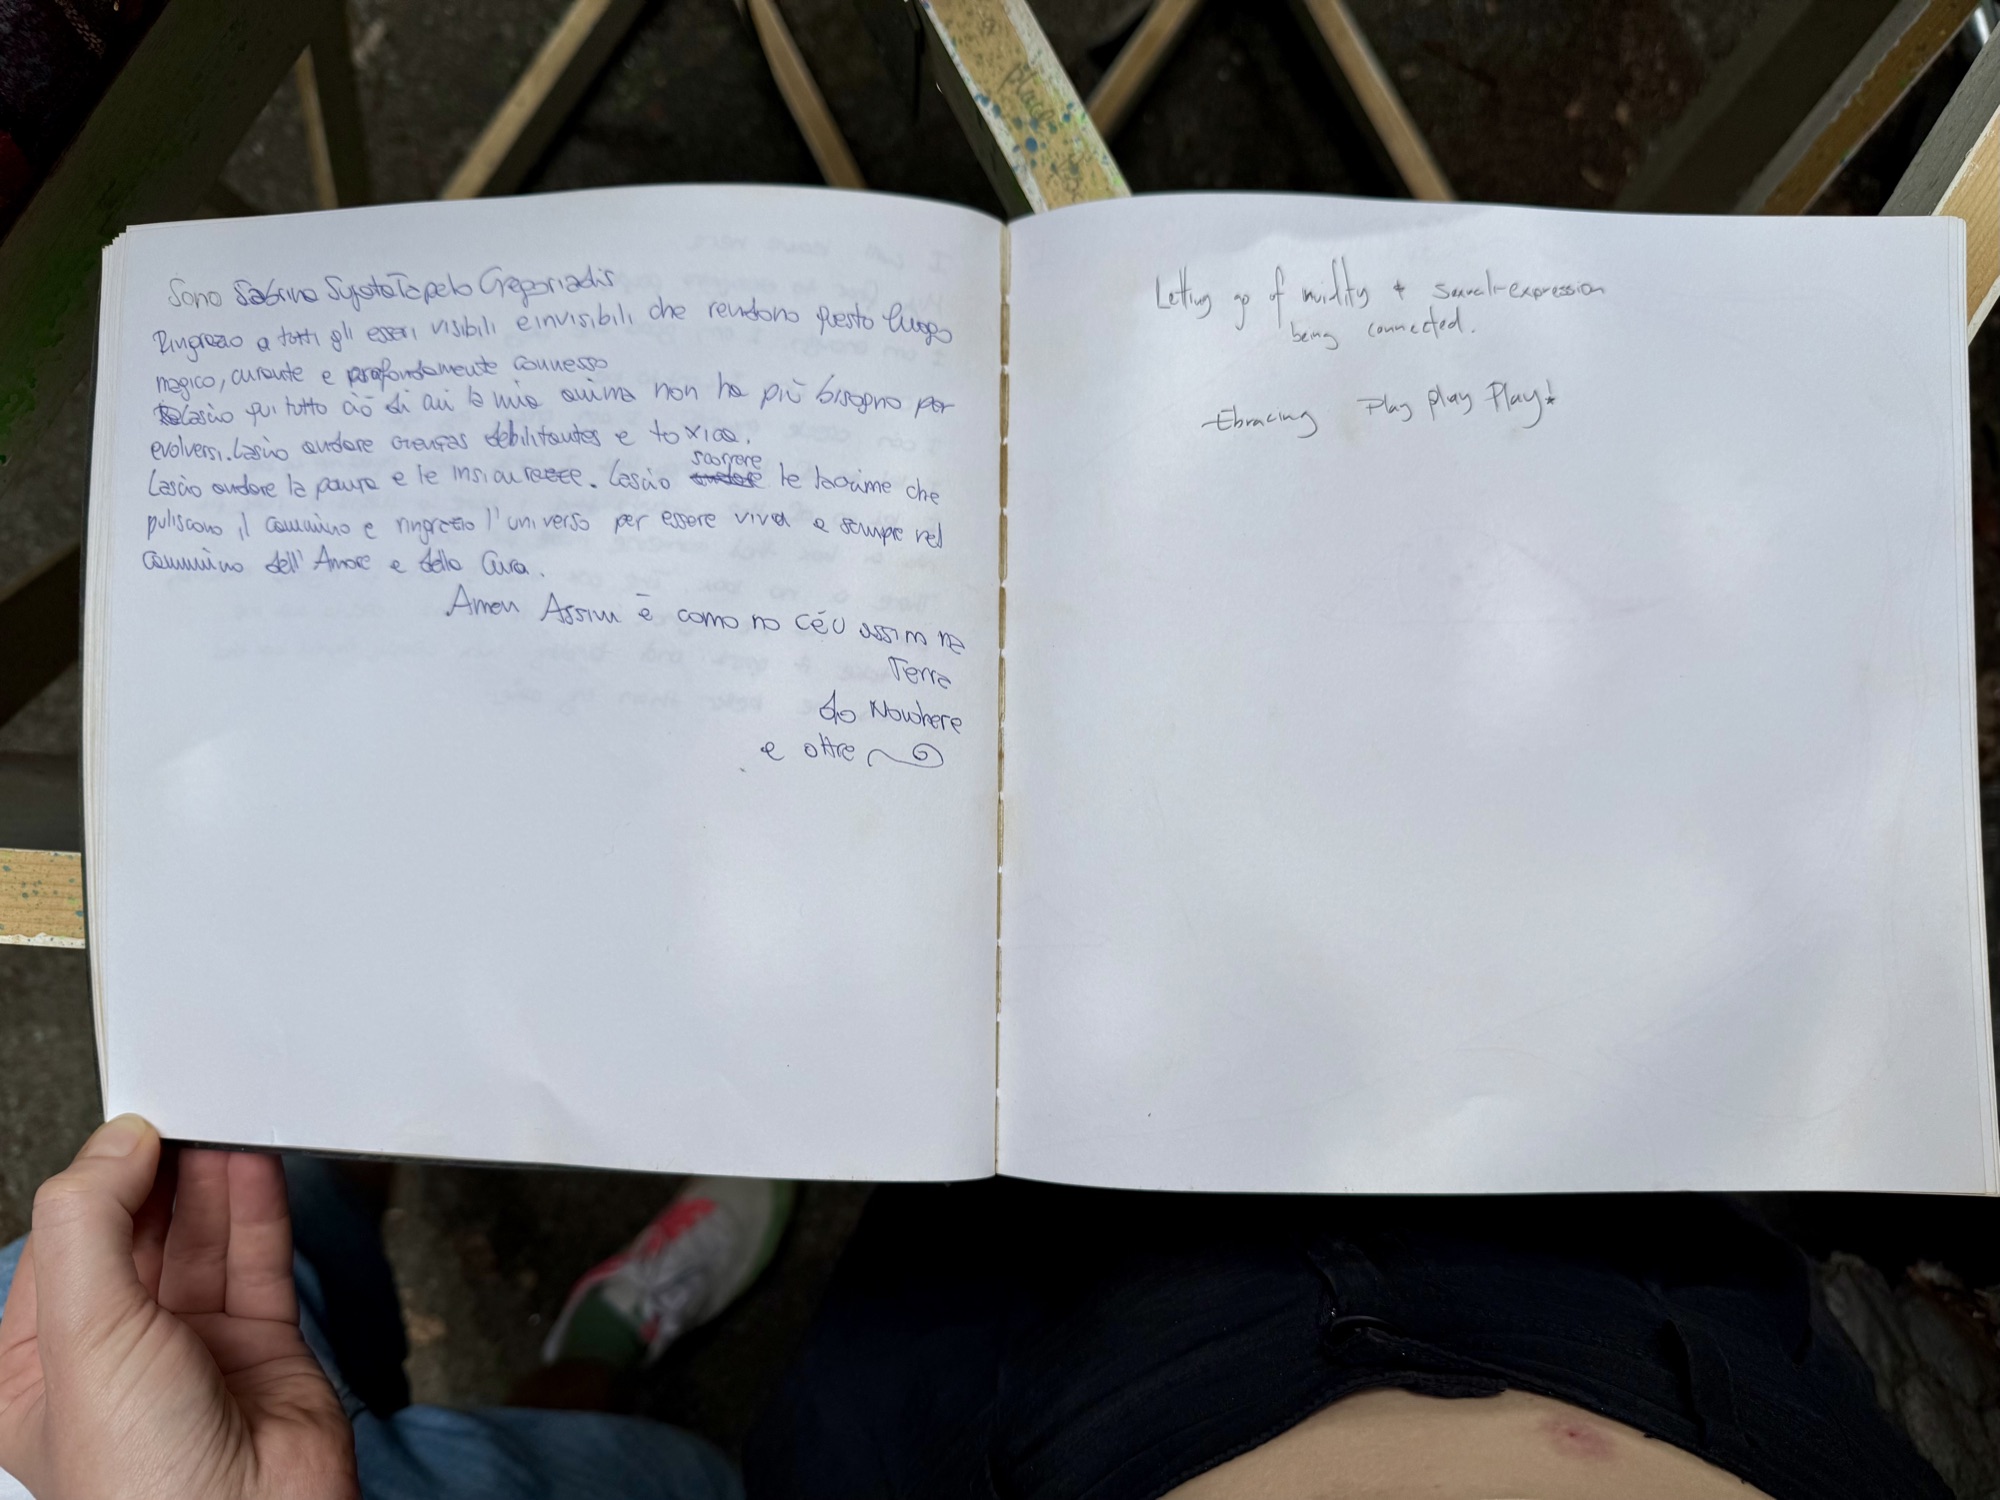 Sono Sabrina Syota Tapelo Gregoriadis
Ringrazio a tutti gli esseri visibili e invisibili che rendono questo luogo
magico, curante e profondamente connesso
Lascio qui tutto ciò di cui la mia anima non ha più bisogno per
evolversi. Lascio andare crenças debilitantes e toxica.
Lascio andare la paura e le insicurezze. Lascio scorrere le lacrime che
puliscono il cammino e ringrazio l'universo per essere viva e sempre nel
cammino dell'Amore e della Cura.
Amen Assim é como no céu assim na
Terra
do Nowhere
e oltre
Letting go of nuidity + sexual-expression
being connected.
Ebracing Play play Play!
place